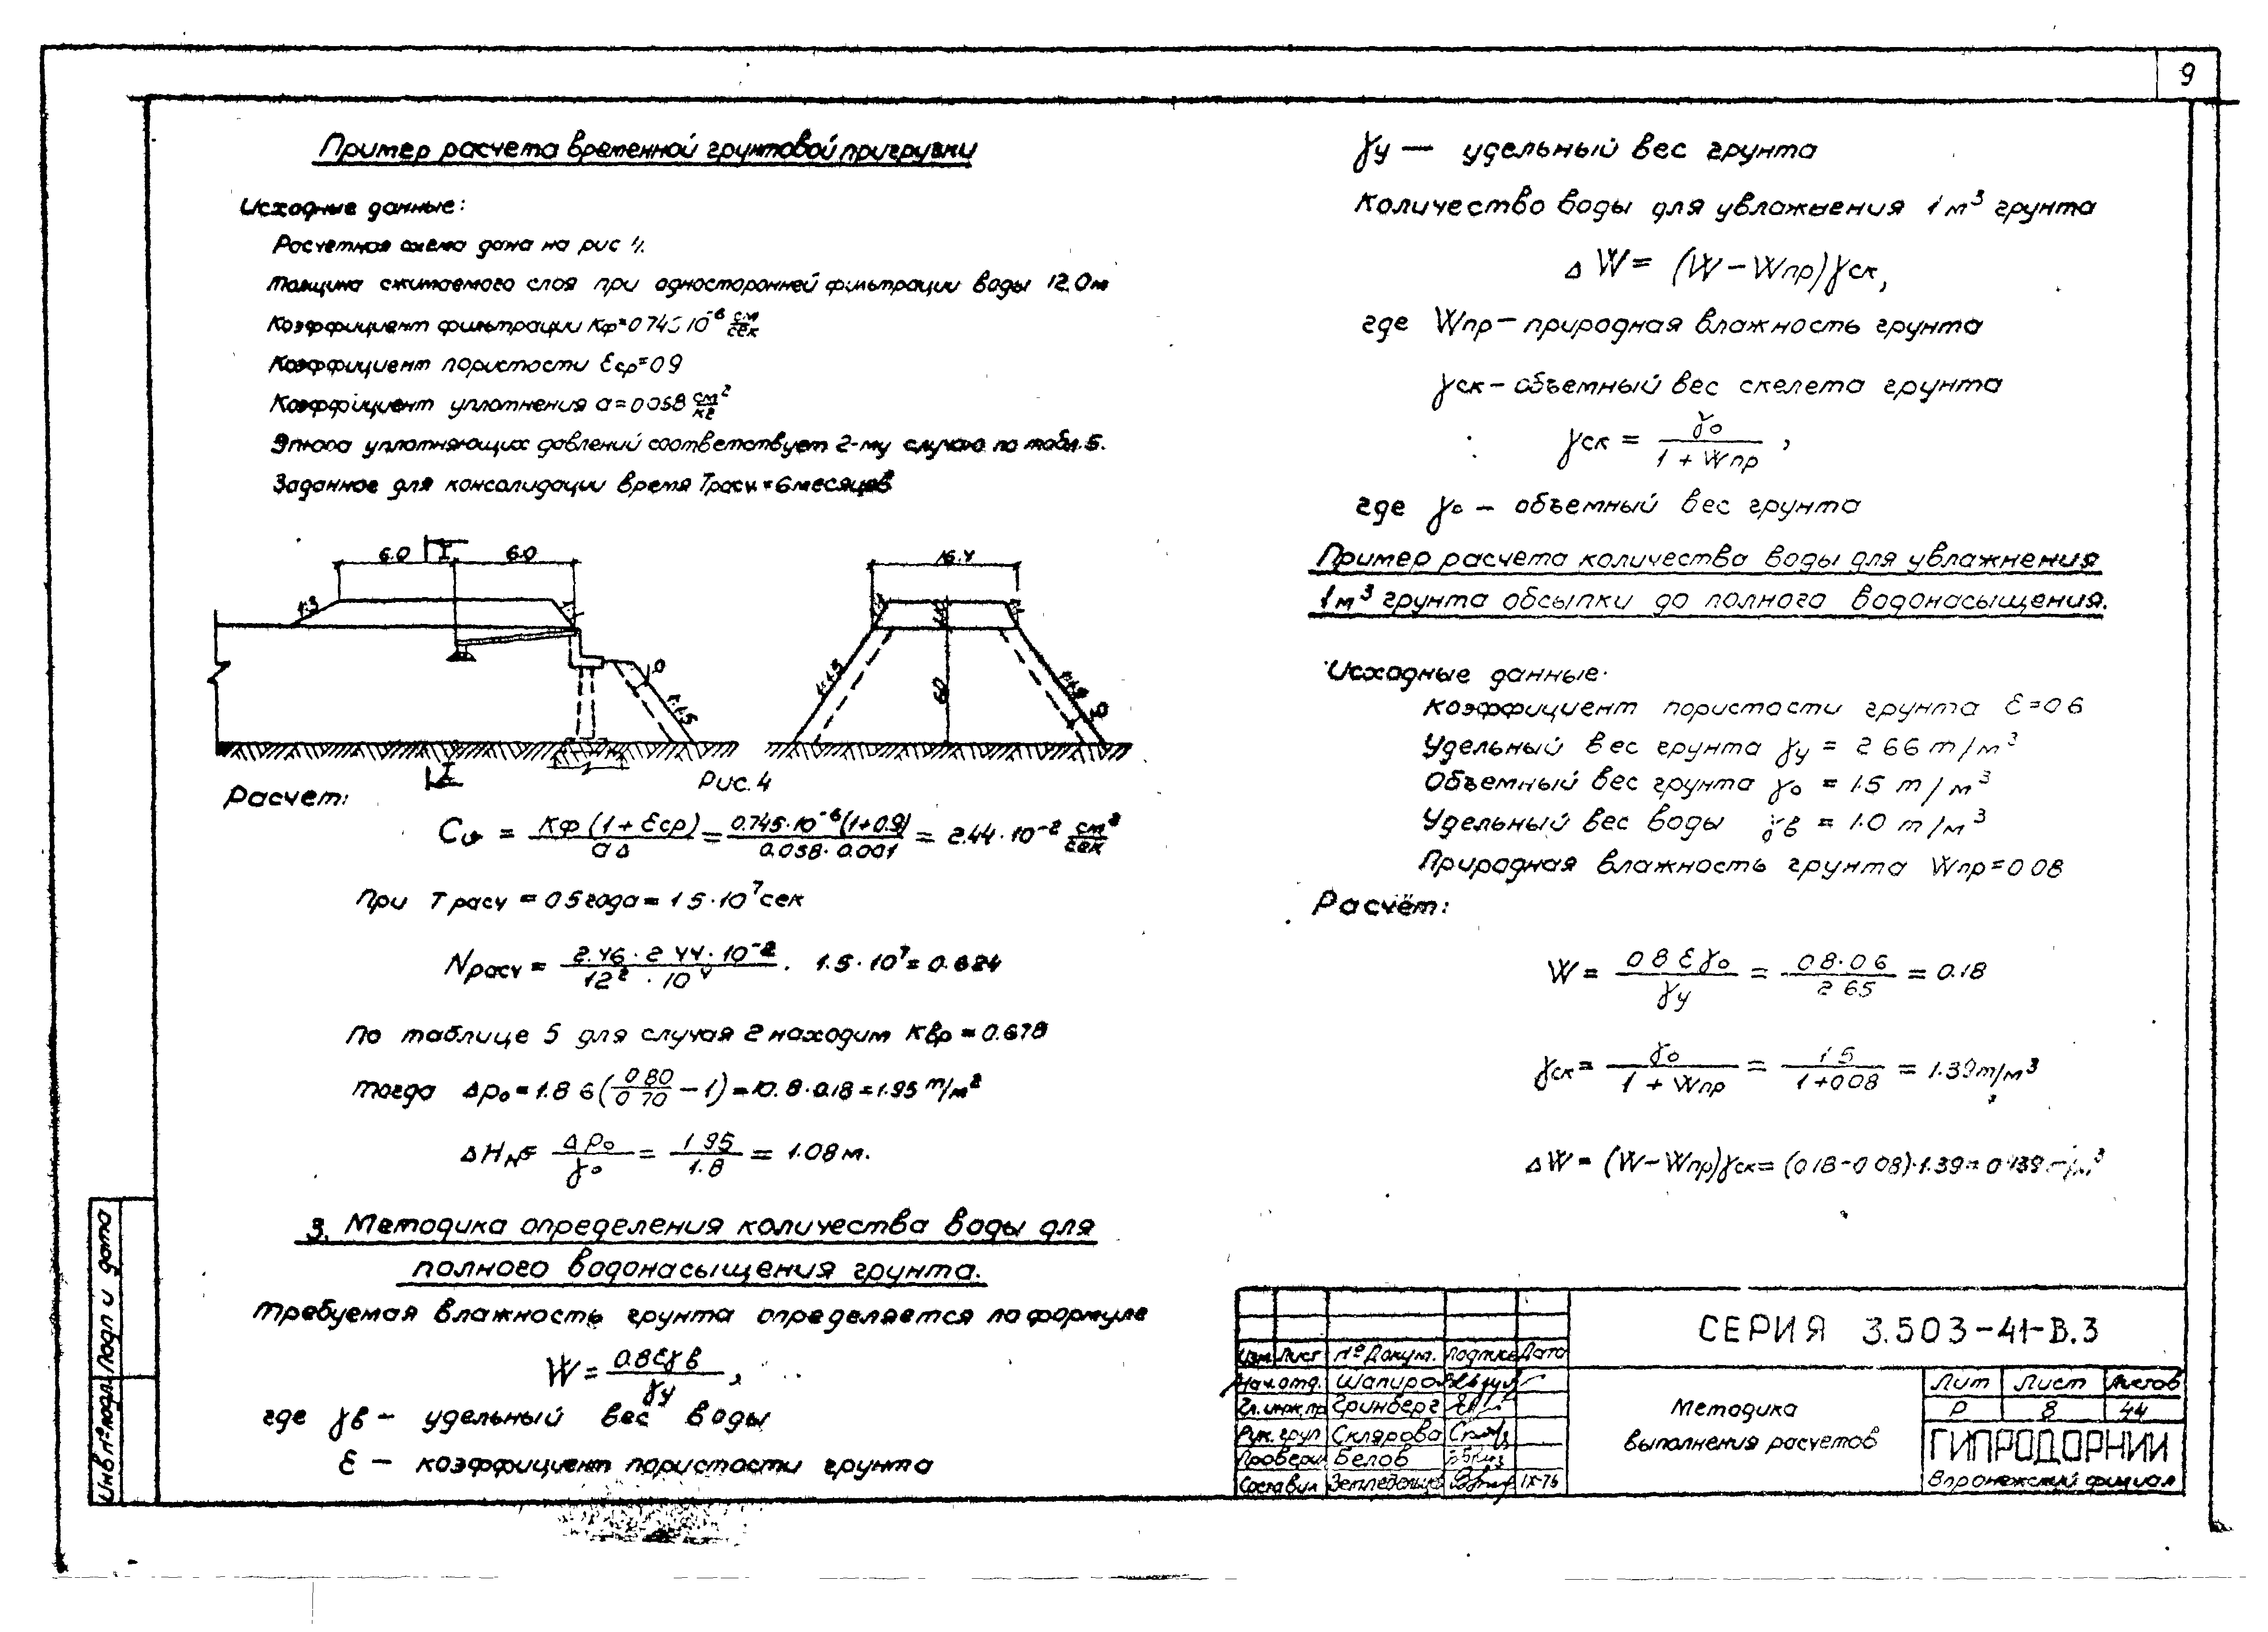 9
Пример расчета временной грунтовой пригрузки
Исходные данные:
Расчетная схема дана на рис 4.
Толщина сжимаемого слоя при односторонней фильтрации воды 12.0м
Коэффициент фильтрации Кф=0 745 10⁻⁶ см/сек
Коэффициент пористости Ɛср=0 9
Коэффициент уплотнения а=0 058 см²/кг
Эпюра уплотняющих давлений соответствует 2-му случаю по табл.5.
Заданное для консолидации время Трасч=6месяцев
6.0 I 6.0 16.4
1:3
1:1.5 1:1.5 1:1.5
I
Рис.4
Расчет:
Cυ = Кф(1+Ɛср)/аΔ = 0.745·10⁻⁶(1+0.9)/0.058·0.001 = 2.44·10⁻² см²/сек
При Трасч = 0 5года = 1 5·10⁷сек
Nрасч = 2.46·2 44·10⁻²/12²·10⁴ · 1.5·10⁷ = 0.624
По таблице 5 для случая 2 находим Квр = 0.678
тогда Δр₀=1.8 6(0 80/0 70 −1)=10.8·0.18=1.95 т/м²
ΔHм= Δр₀/γ₀ = 1 95/1.8 = 1.08м.
3. Методика определения количества воды для
полного водонасыщения грунта.
Требуемая влажность грунта определяется по формуле
W = 0.8Ɛγв/γу ,
где γв − удельный вес воды
Ɛ − коэффициент пористости грунта
γу — удельный вес грунта
Количество воды для увлажнения 1м³ грунта
ΔW = (W−Wпр)γск,
где Wпр−природная влажность грунта
γск−объемный вес скелета грунта
γск = γ₀/1+Wпр ,
где γ₀ − объемный вес грунта
Пример расчета количества воды для увлажнения
1м³ грунта обсыпки до полного водонасыщения.
Исходные данные.
Коэффициент пористости грунта Ɛ=0 6
Удельный вес грунта γу = 2 66 т/м³
Объемный вес грунта γ₀ = 1.5 т/м³
Удельный вес воды γв = 1.0 т/м³
Природная влажность грунта Wпр=0 08
Расчёт:
W = 0 8 Ɛ γ₀/γу = 0 8·0 6/2 65 = 0.18
γск = γ₀/1+Wпр = 1 5/1+0 08 = 1.39т/м³
ΔW = (W−Wпр)γск = (0 18−0 08)·1.39=0 139 т/м³
СЕРИЯ 3.503-41-В.3
Изм Лист №Докум. Подпись Дата
Нач.отд. Шапиро
Гл.инж.пр Гринберг
Рук.груп Склярова
Проверил Белов
Составил IX-76
Методика
выполнения расчетов
Лит Лист Листов
Р 8 44
ГИПРОДОРНИИ
Воронежский филиал
Инв№подл. Подп и дата